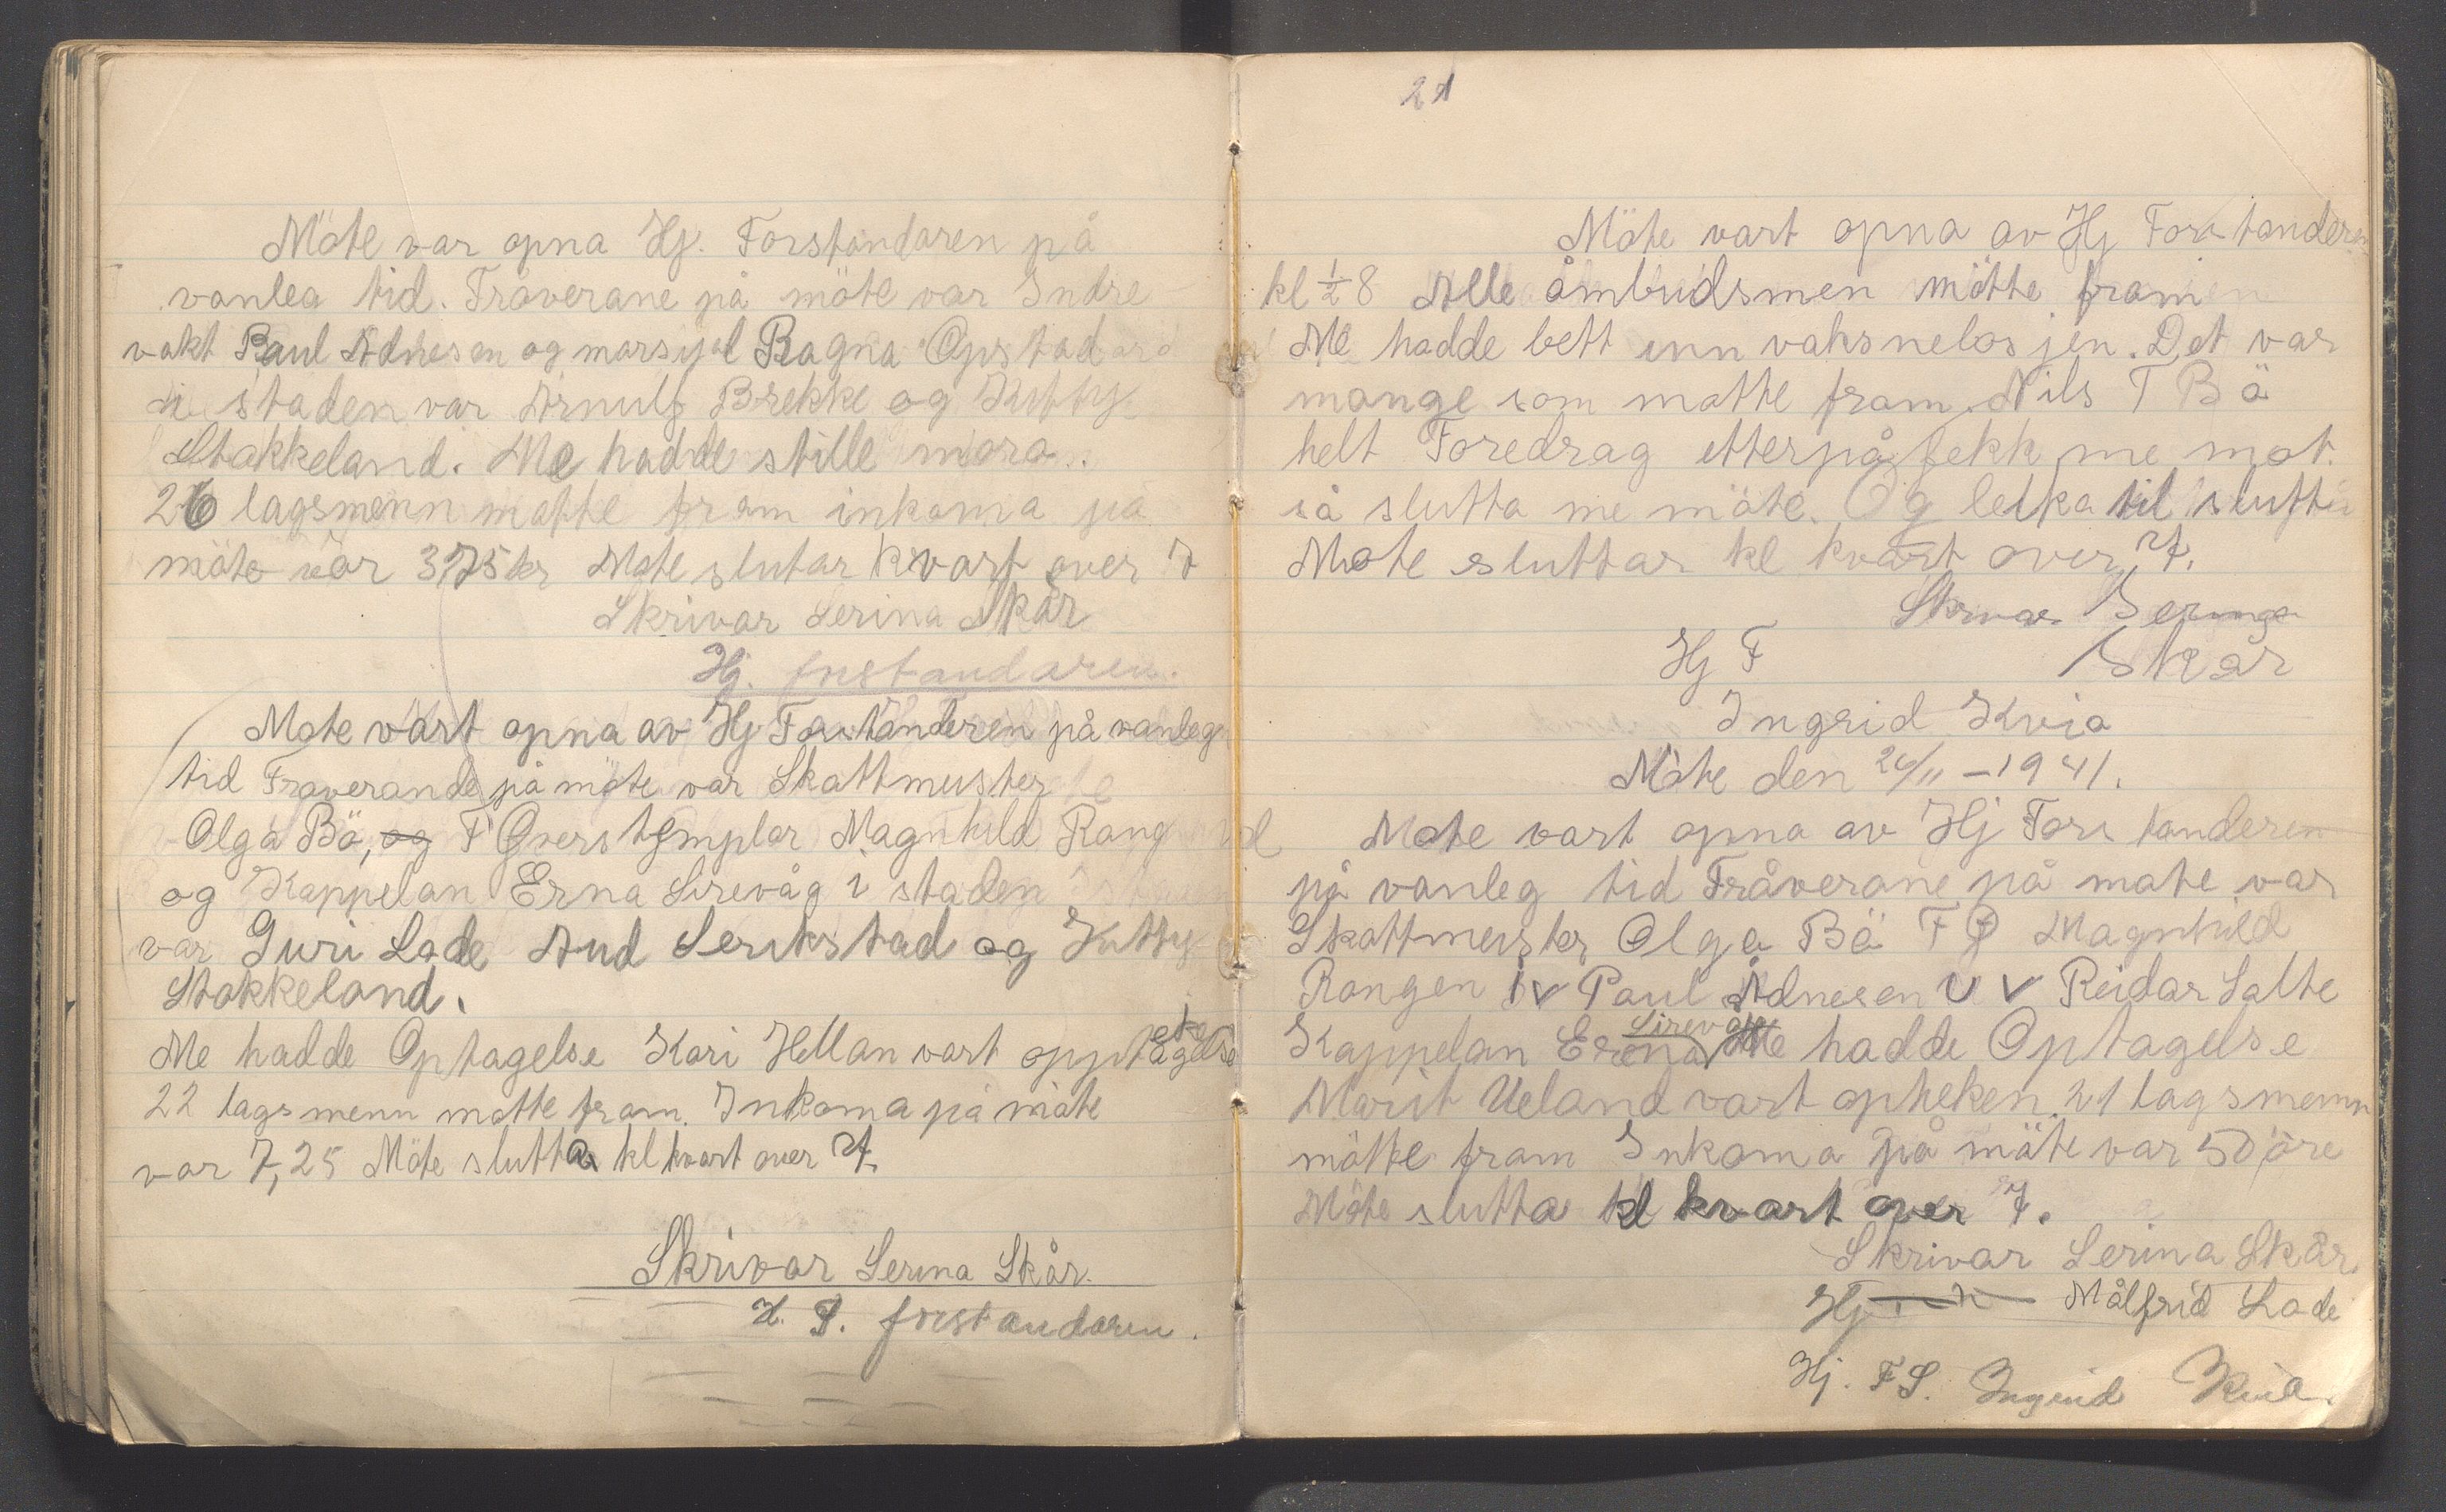 Möte var opna Hj. Forstandaren på
vanlea tid. Fråverane på möte var Indre
vakt Paul Adnesen og marsjal Ragna Opstad
i staden var Arnulf Brekke og Kitty
Stokkeland. Me hadde stille mora..
26 lagsmenn møtte fram inkoma på
möte var 375 kr Mote slutar kvart over 7
Skrivar Serina Skår
Hj. forstandaren.
Mote vart opna av Hj Forstanderen på vanleg
tid Fraverande på möte var Skattmeister
Olga Bö, og F Øverstemplar Magnhild Rang
og Kappelan Erna Sirevåg i staden
var Guri Lode Aud Serikstad og Kitty
Stokkeland.
Me hadde Optagelse Kari Hellan vart
22 lagsmenn motte fram. Inkoma på möte
var 7,25 Möte slutta kl kvart over 7.
Skrivar Serina Skår.
H. J. forstandaren.
21
Möte vart opna av Hj Forstanderen
kl ½ 8 Alle åmbudsmen mötte fram
Me hadde bett inn vaksnelosjen. Det var
mange som motte fram. Nils T Bö
helt Foredrag etterpå fekk me mat.
så slutta me möte. Og leika til slutt
Mote sluttar kl kvart over 7.
Skrivar Serina
Hj F Skår
Ingrid Kvia
Möte den 26/11 - 1941.
Mote vart opna av Hj Forstanderen
på vanleg tid Fråverane på mote var
Skattmeister Olga Bö F Ø Magnhild
Rongen i v Paul Ådnesen U v Reidar Salte
Kappelan Erna Sirevåg Me hadde Optagelse
Marit Ueland vart opteken. 21 lagsmenn
mötte fram Inkoma på möte var 50 öre
Möte slutta kl kvart over 7.
Skrivar Serina Skår.
Hj Målfrid Lode
Hj. F S. Ingrid Kvia.